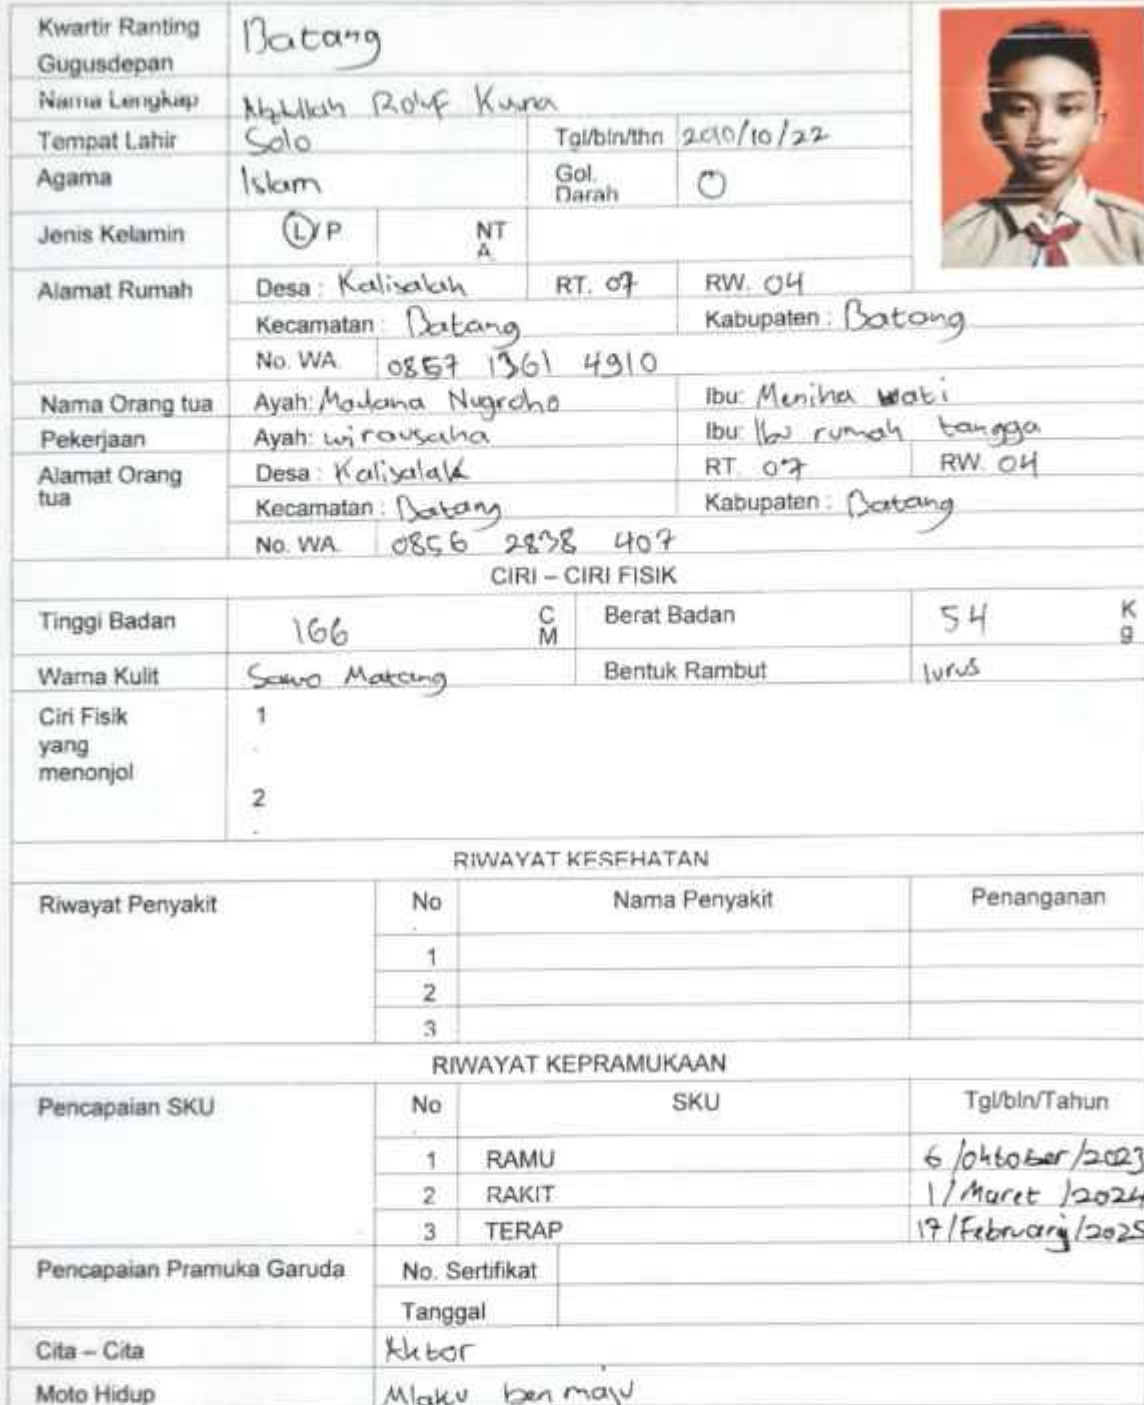 Kwartir Ranting Batang
Gugusdepan
Nama Lengkap Abdullah Kuna
Tempat Lahir Solo Tgl/bln/thn 2010/10/22
Agama Islam Gol. Darah O
Jenis Kelamin L/P NTA
Alamat Rumah Desa : Kalisalah RT. 07 RW. 04
Kecamatan : Batang Kabupaten : Batang
No. WA. 0857 1361 4910
Nama Orang tua Ayah: Maulana Nugroho Ibu: Meniha Wati
Pekerjaan Ayah: wirausaha Ibu: Ibu rumah tangga
Alamat Orang tua Desa : Kalisalak RT. 07 RW. 04
Kecamatan : Batang Kabupaten : Batang
No. WA. 0856 2838 407
CIRI – CIRI FISIK
Tinggi Badan 166 CM Berat Badan 54 Kg
Warna Kulit Sawo Matang Bentuk Rambut lurus
Ciri Fisik yang menonjol
1.
2.
RIWAYAT KESEHATAN
Riwayat Penyakit No. Nama Penyakit Penanganan
1
2
3
RIWAYAT KEPRAMUKAAN
Pencapaian SKU No. SKU Tgl/bln/Tahun
1 RAMU 6/oktober/2023
2 RAKIT 1/Maret/2024
3 TERAP 17/February/2025
Pencapaian Pramuka Garuda No. Sertifikat
Tanggal
Cita – Cita Aktor
Moto Hidup Mlaku ben maju